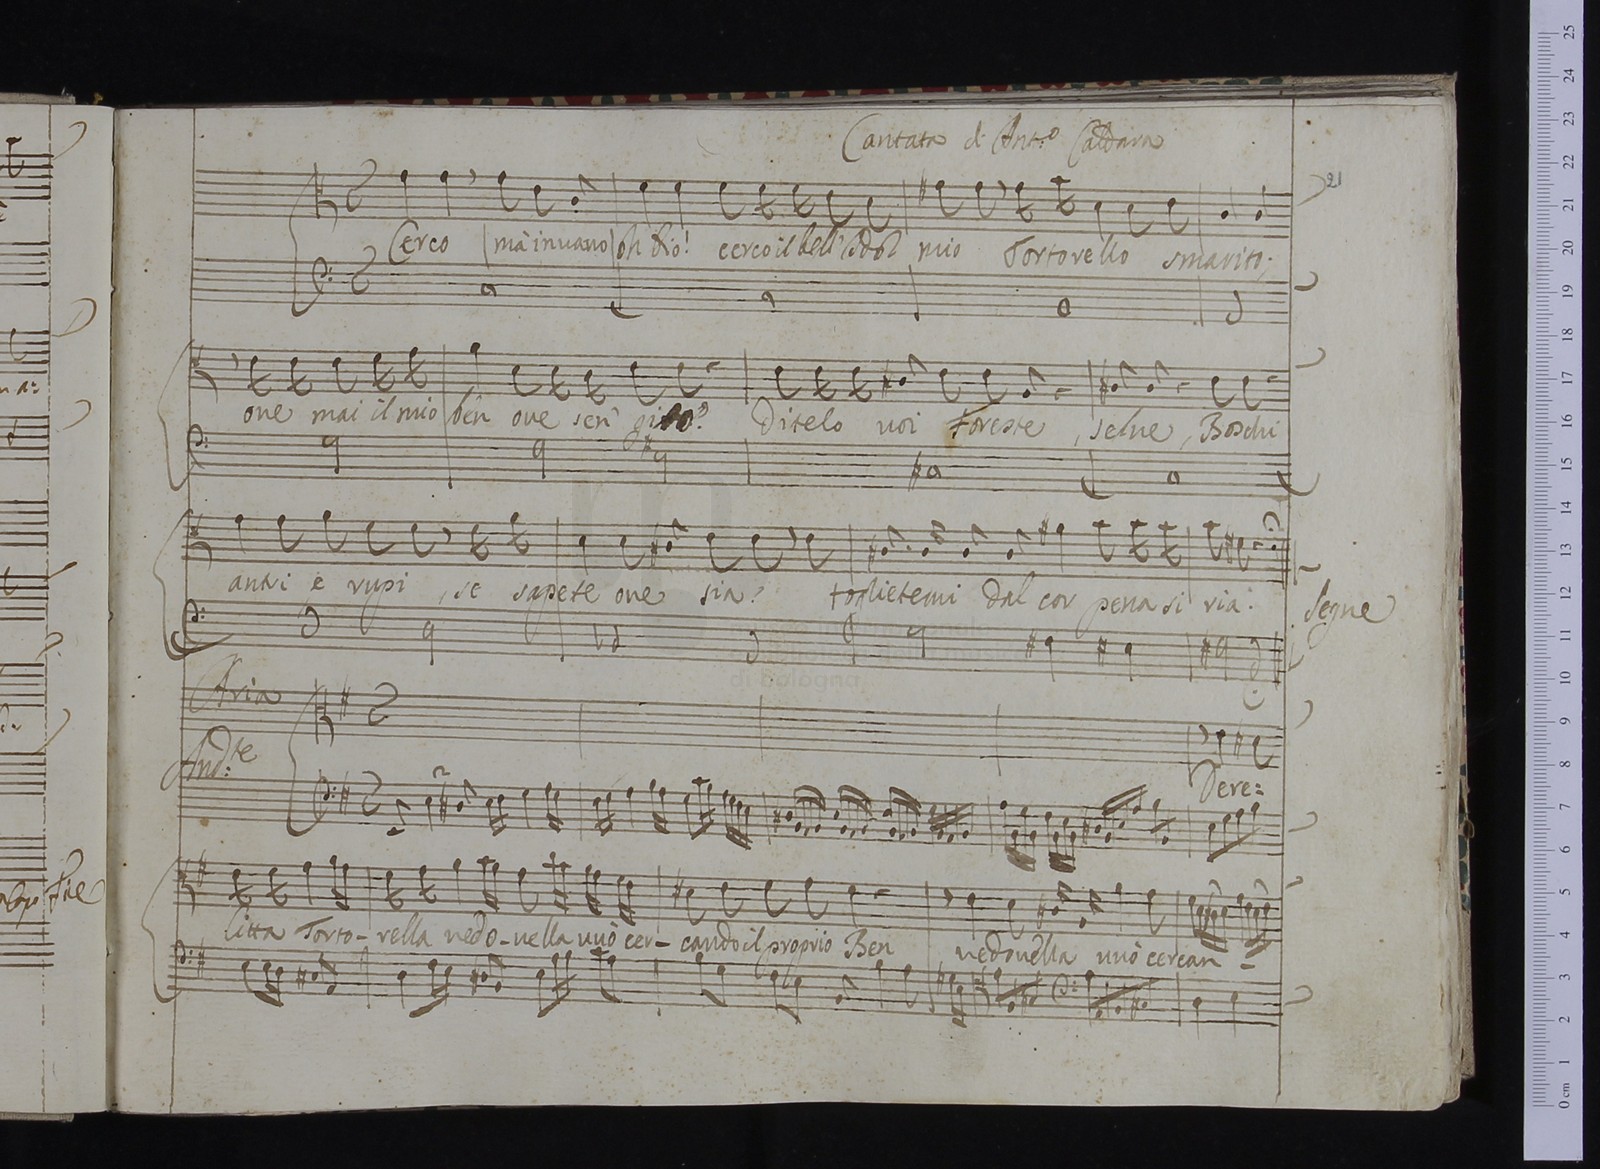 Cantata di Ant.o Caldara
21
Cerco ma inuano oh dio! cerco il bell' idol mio Tortorello smarito;
oue mai il mio ben oue sen gito? Ditelo uoi Foreste, selue, Boschi
antri e rupi, se sapete oue sia? toglietemi dal cor pena si ria.
Segue
Aria
And.te
Dere=
litta Torto-rella uedo-uella uuò cer-cando il proprio Ben uedouella uuò cercan-